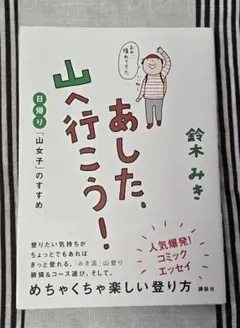 あした、
山へ行こう！
日帰り「山女子」のすすめ
鈴木みき
登りたい気持ちが
ちょっとでもあれば
きっと登れる、「みき流」山登り
装備&コース選び、そして、
めちゃくちゃ楽しい登り方
人気爆発！
コミック
エッセイ
講談社